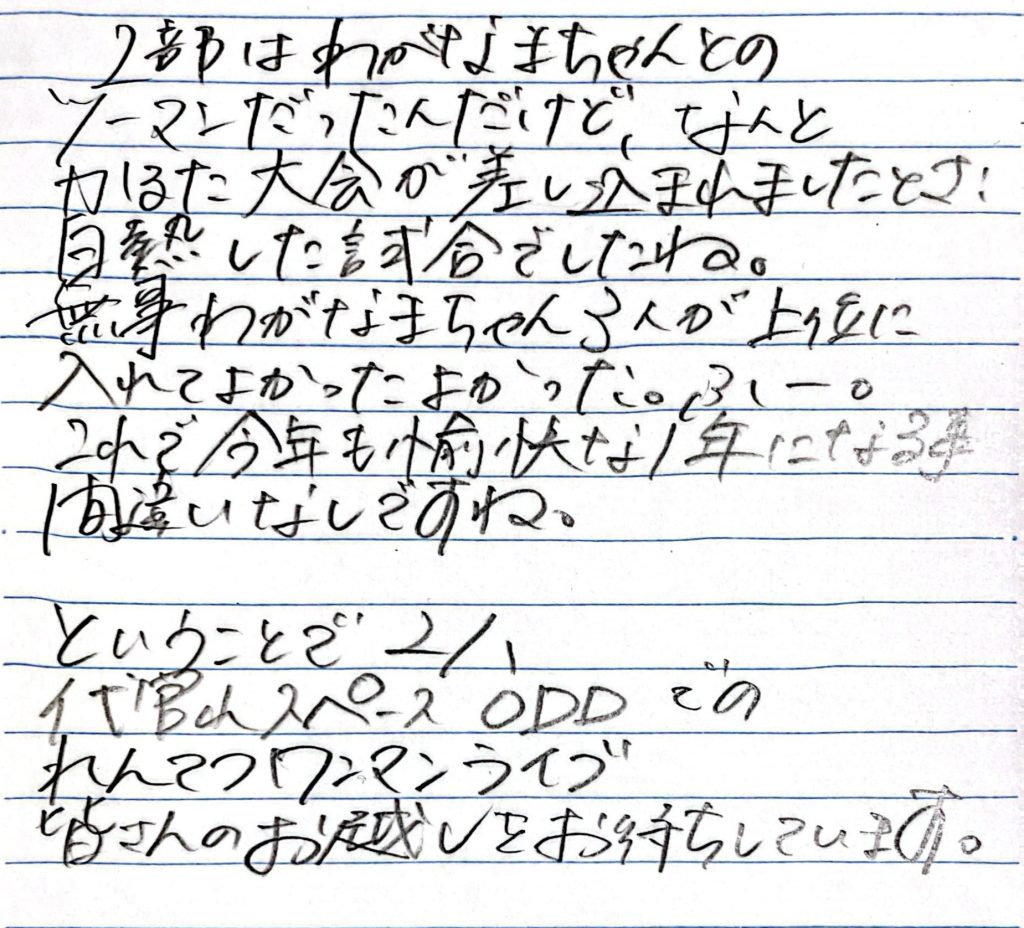 2部はわがなまちゃんとの
ツーマンだったんだけど、なんと
カるた大会が差し込まれましたとさ!
白熱した試合でしたね。
無事わがなまちゃん3人が上位に
入れてよかったよかった。ふぃー。
これで今年も愉快な1年になる事
間違いなしですね。
ということで2/1、
代官山スペースODDでの
れんてつワンマンライブ
皆さんのお越しをお待ちしています。